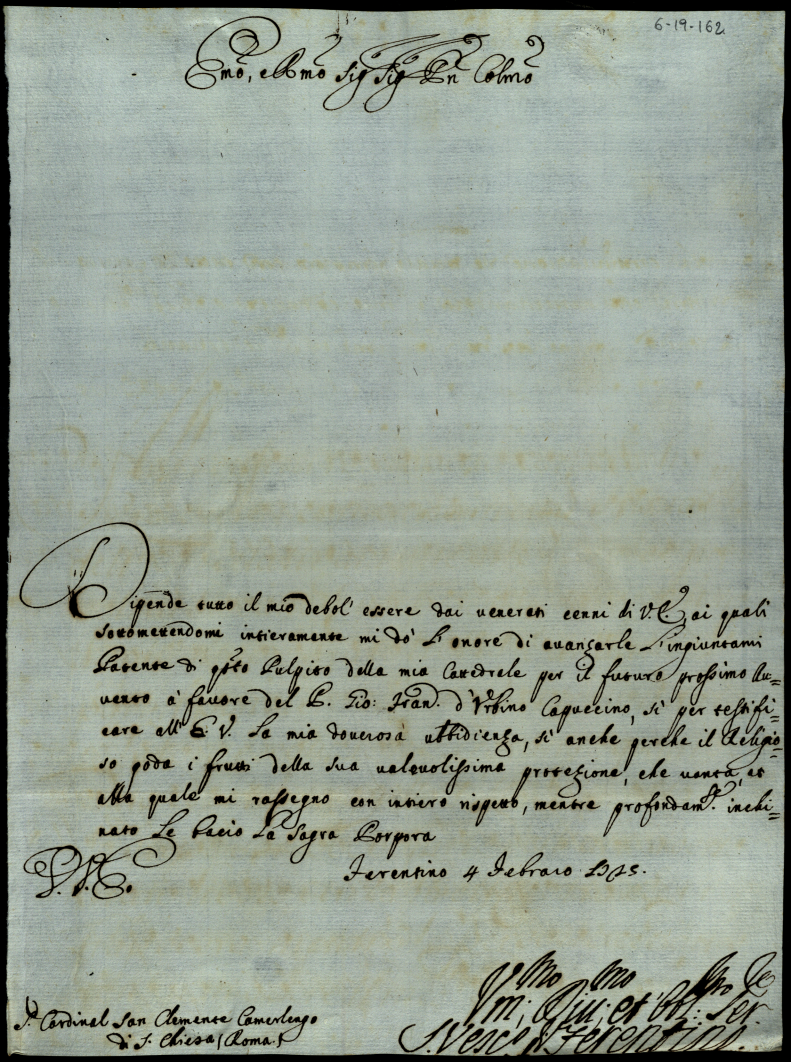 6-19-162
Emo, e Rmo Sig Sig Pñ Colmo
Dipende tutto il mio debol' essere dai venerati cenni di V. E., ai quali
sottomettendomi intieramente mi dò l'onore di avanzarle l'ingiuntami
Patente di qsto Pulpito della mia Cattedrale per il futuro prossimo Au=
vento à favore del P. Gio: Fran. d'Urbino Capuccino, sì per testifi=
care all' E. V. la mia doverosa ubbidienza, sì anche perche il Religio=
so goda i frutti della sua valevolissima protezione, che vanta, et
alla quale mi rassegno con intiero rispetto, mentre profondamte. inchi=
nato Le bacio La Sagra Porpora
Ferentino 4 Febraio
V. E.
Sr. Cardinal San Clemente Camerlengo
di S. Chiesa (Roma.)
Vmo Dmo et Obl: Ser.
Il Vesco di Ferentino.